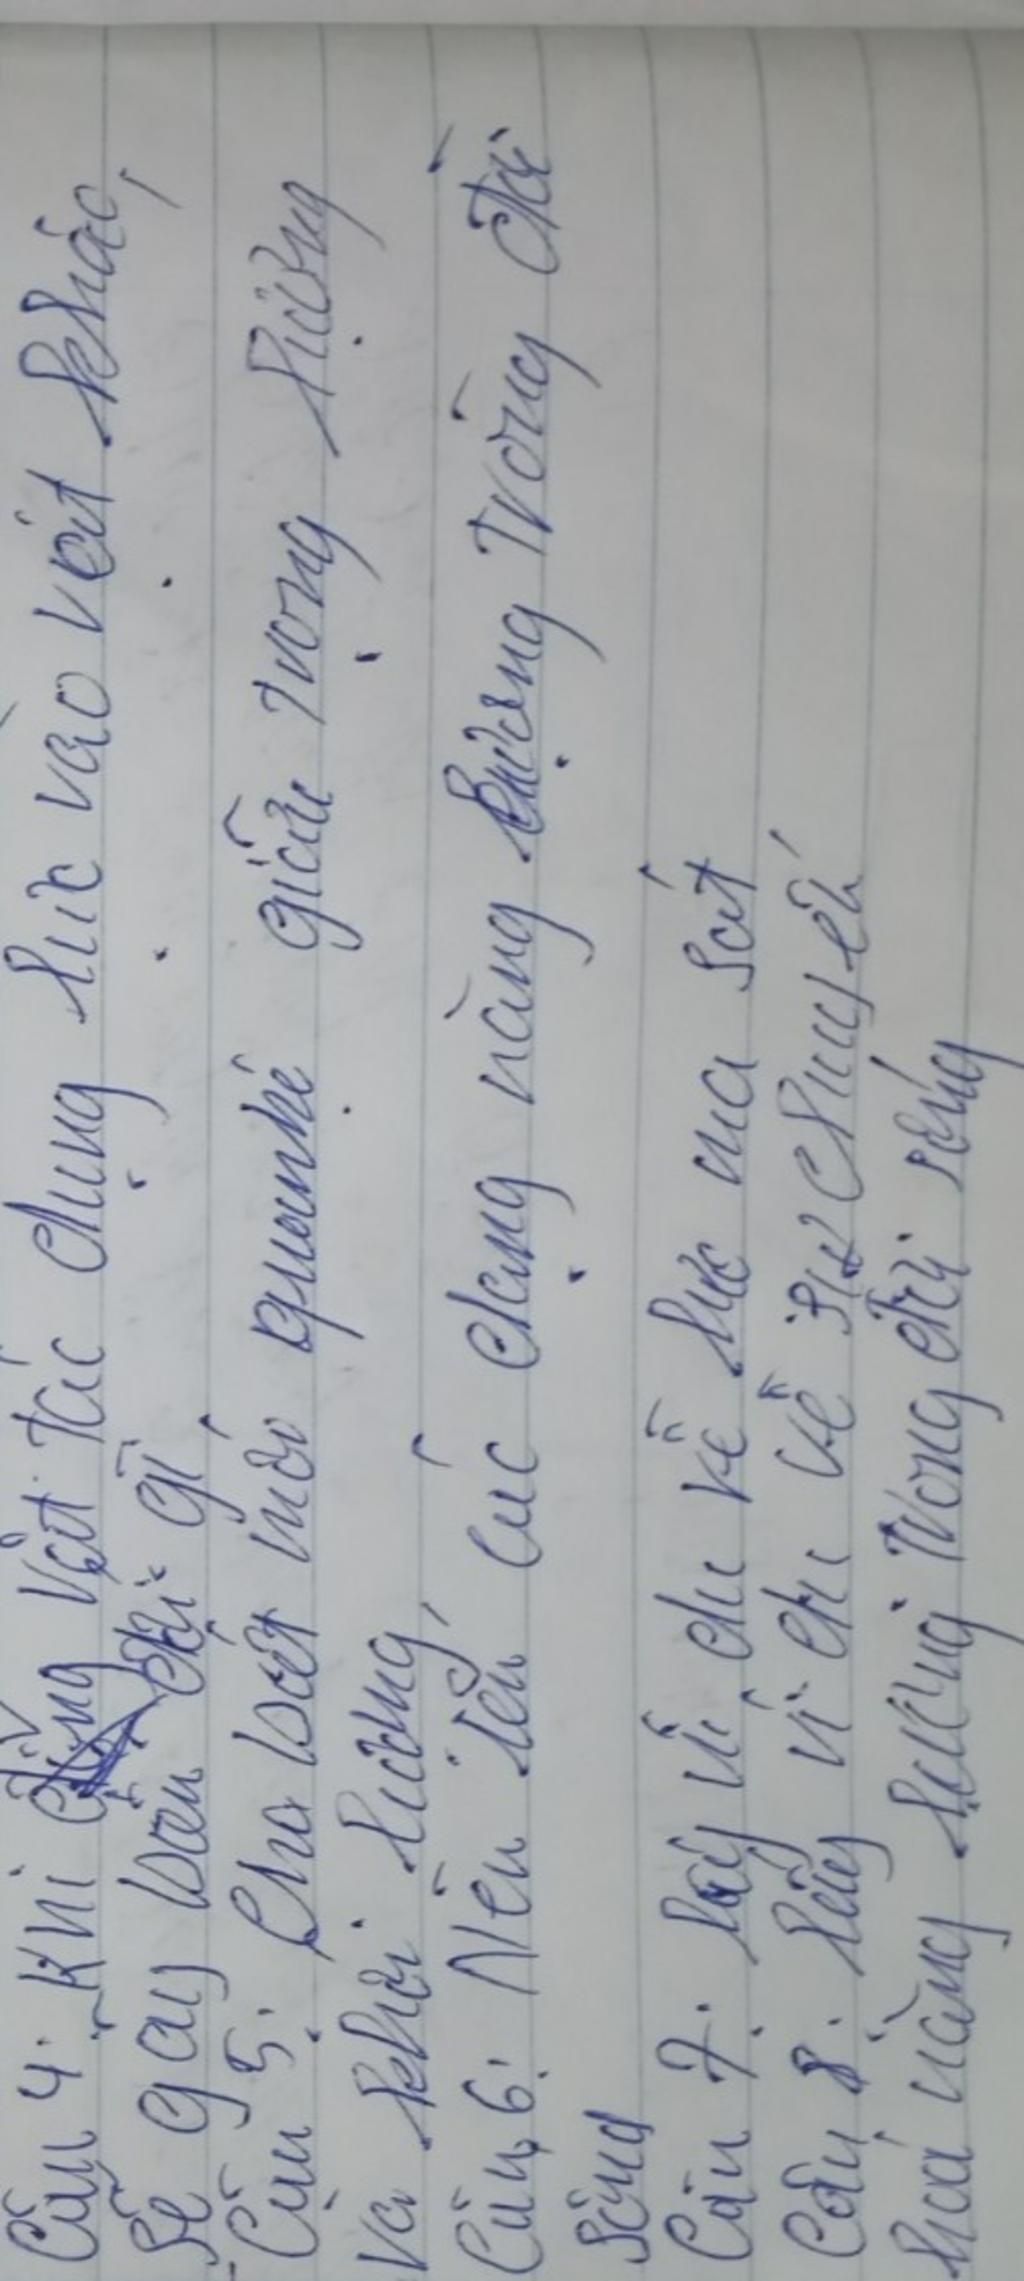 Câu 4: Khi vật tác dụng lực vào vật khác,
sẽ gây biến đổi gì
Câu 5: Cho biết mối quan hệ giữa trọng lượng
và khối lượng,
Câu 6: Nêu tên các dạng năng lượng trong đời
sống
Câu 7: lấy ví dụ về lực ma sát
Câu 8: lấy ví dụ về sự chuyển
hoá năng lượng trong đời sống